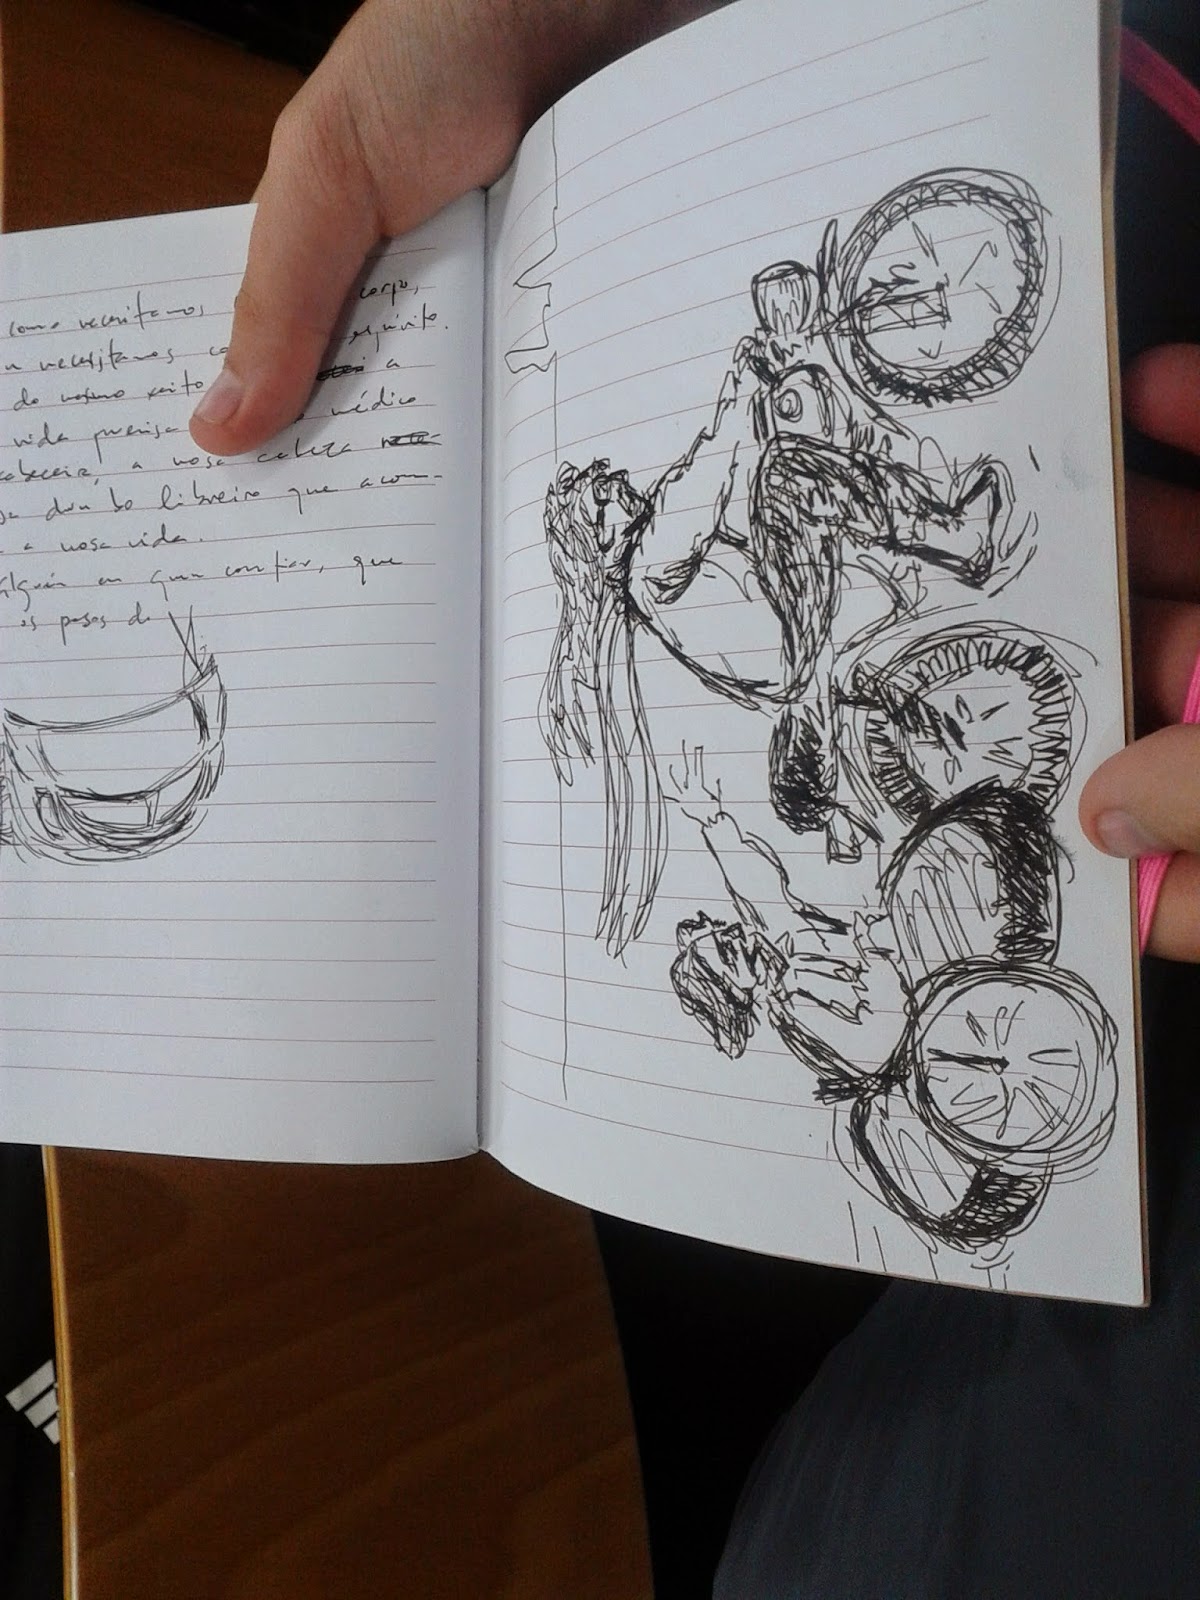 como necesitamos corpo,
necesitamos espírito.
do mesmo xeito a
vida precisa médico
cabeceira, a nosa cabeza
dun bo libreiro que acom-
a nosa vida.
alguén en quen confiar, que
os pasos de